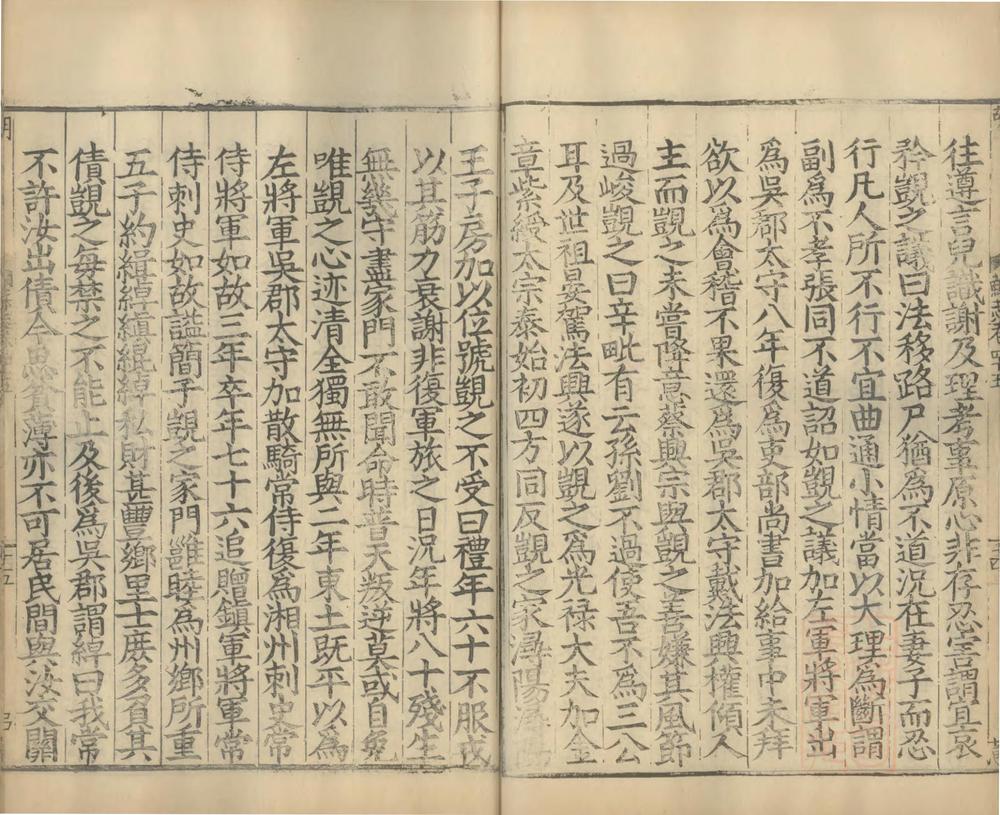 往遵言兒識謝及理考事原心非存忍害謂宜哀
矜覬之議曰法移路尸猶為不道況在妻子而忍
行凡人所不行不宜曲通小情當以大理為斷謂
副為不孝張同不道詔如覬之議加左軍將軍出
為吳郡太守八年復為吏部尚書加給事中未拜
欲以為會稽不果還為吳郡太守戴法興權傾人
主而覬之未嘗降意蔡興宗與覬之善嫌其風節
過峻覬之曰辛毗有云孫劉不過使吾不為三公
耳及世祖晏駕法興遂以覬之為光祿大夫加金
章紫綬太宗泰始初四方同反覬之家潯陽潯陽
王子房加以位號覬之不受曰禮年六十不服戎
以其筋力衰謝非復軍旅之日況年將八十殘生
無幾守盡家門不敢聞命時普天叛逆莫或自免
唯覬之心迹清全獨無所與二年東土既平以為
左將軍吳郡太守加散騎常侍復為湘州刺史常
侍將軍如故三年卒年七十六追贈鎮軍將軍常
侍刺史如故謚簡子覬之家門雍睦為州鄉所重
五子約緝綽縝緄綽私財甚豐鄉里士庶多負其
債覬之每禁之不能止及後為吳郡謂綽曰我常
不許汝出債今思貧薄亦不可居民間與汝交關